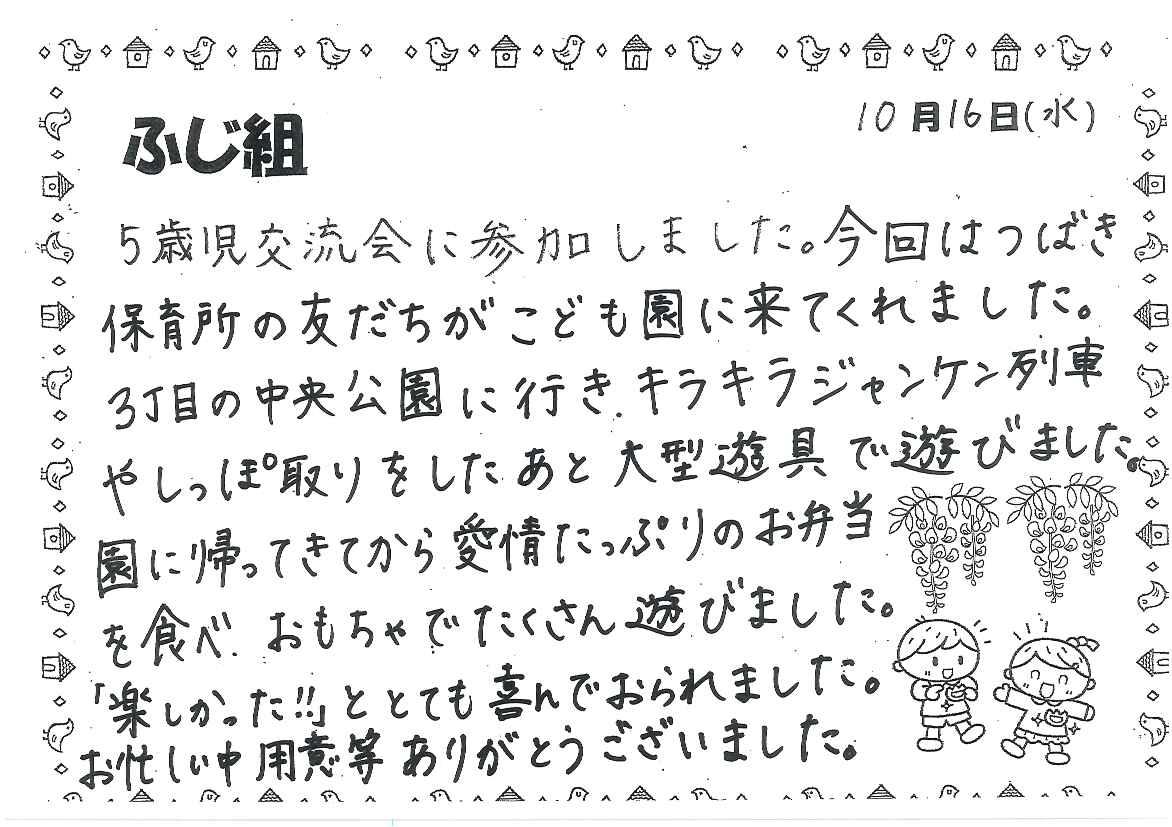 10月16日(水)
ふじ組
5歳児交流会に参加しました。今回はつばき
保育所の友だちがこども園に来てくれました。
3丁目の中央公園に行き、キラキラジャンケン列車
やしっぽ取りをしたあと大型遊具で遊びました。
園に帰ってきてから愛情たっぷりのお弁当
を食べ、おもちゃでたくさん遊びました。
「楽しかった!!」ととても喜んでおられました。
お忙しい中用意等ありがとうございました。